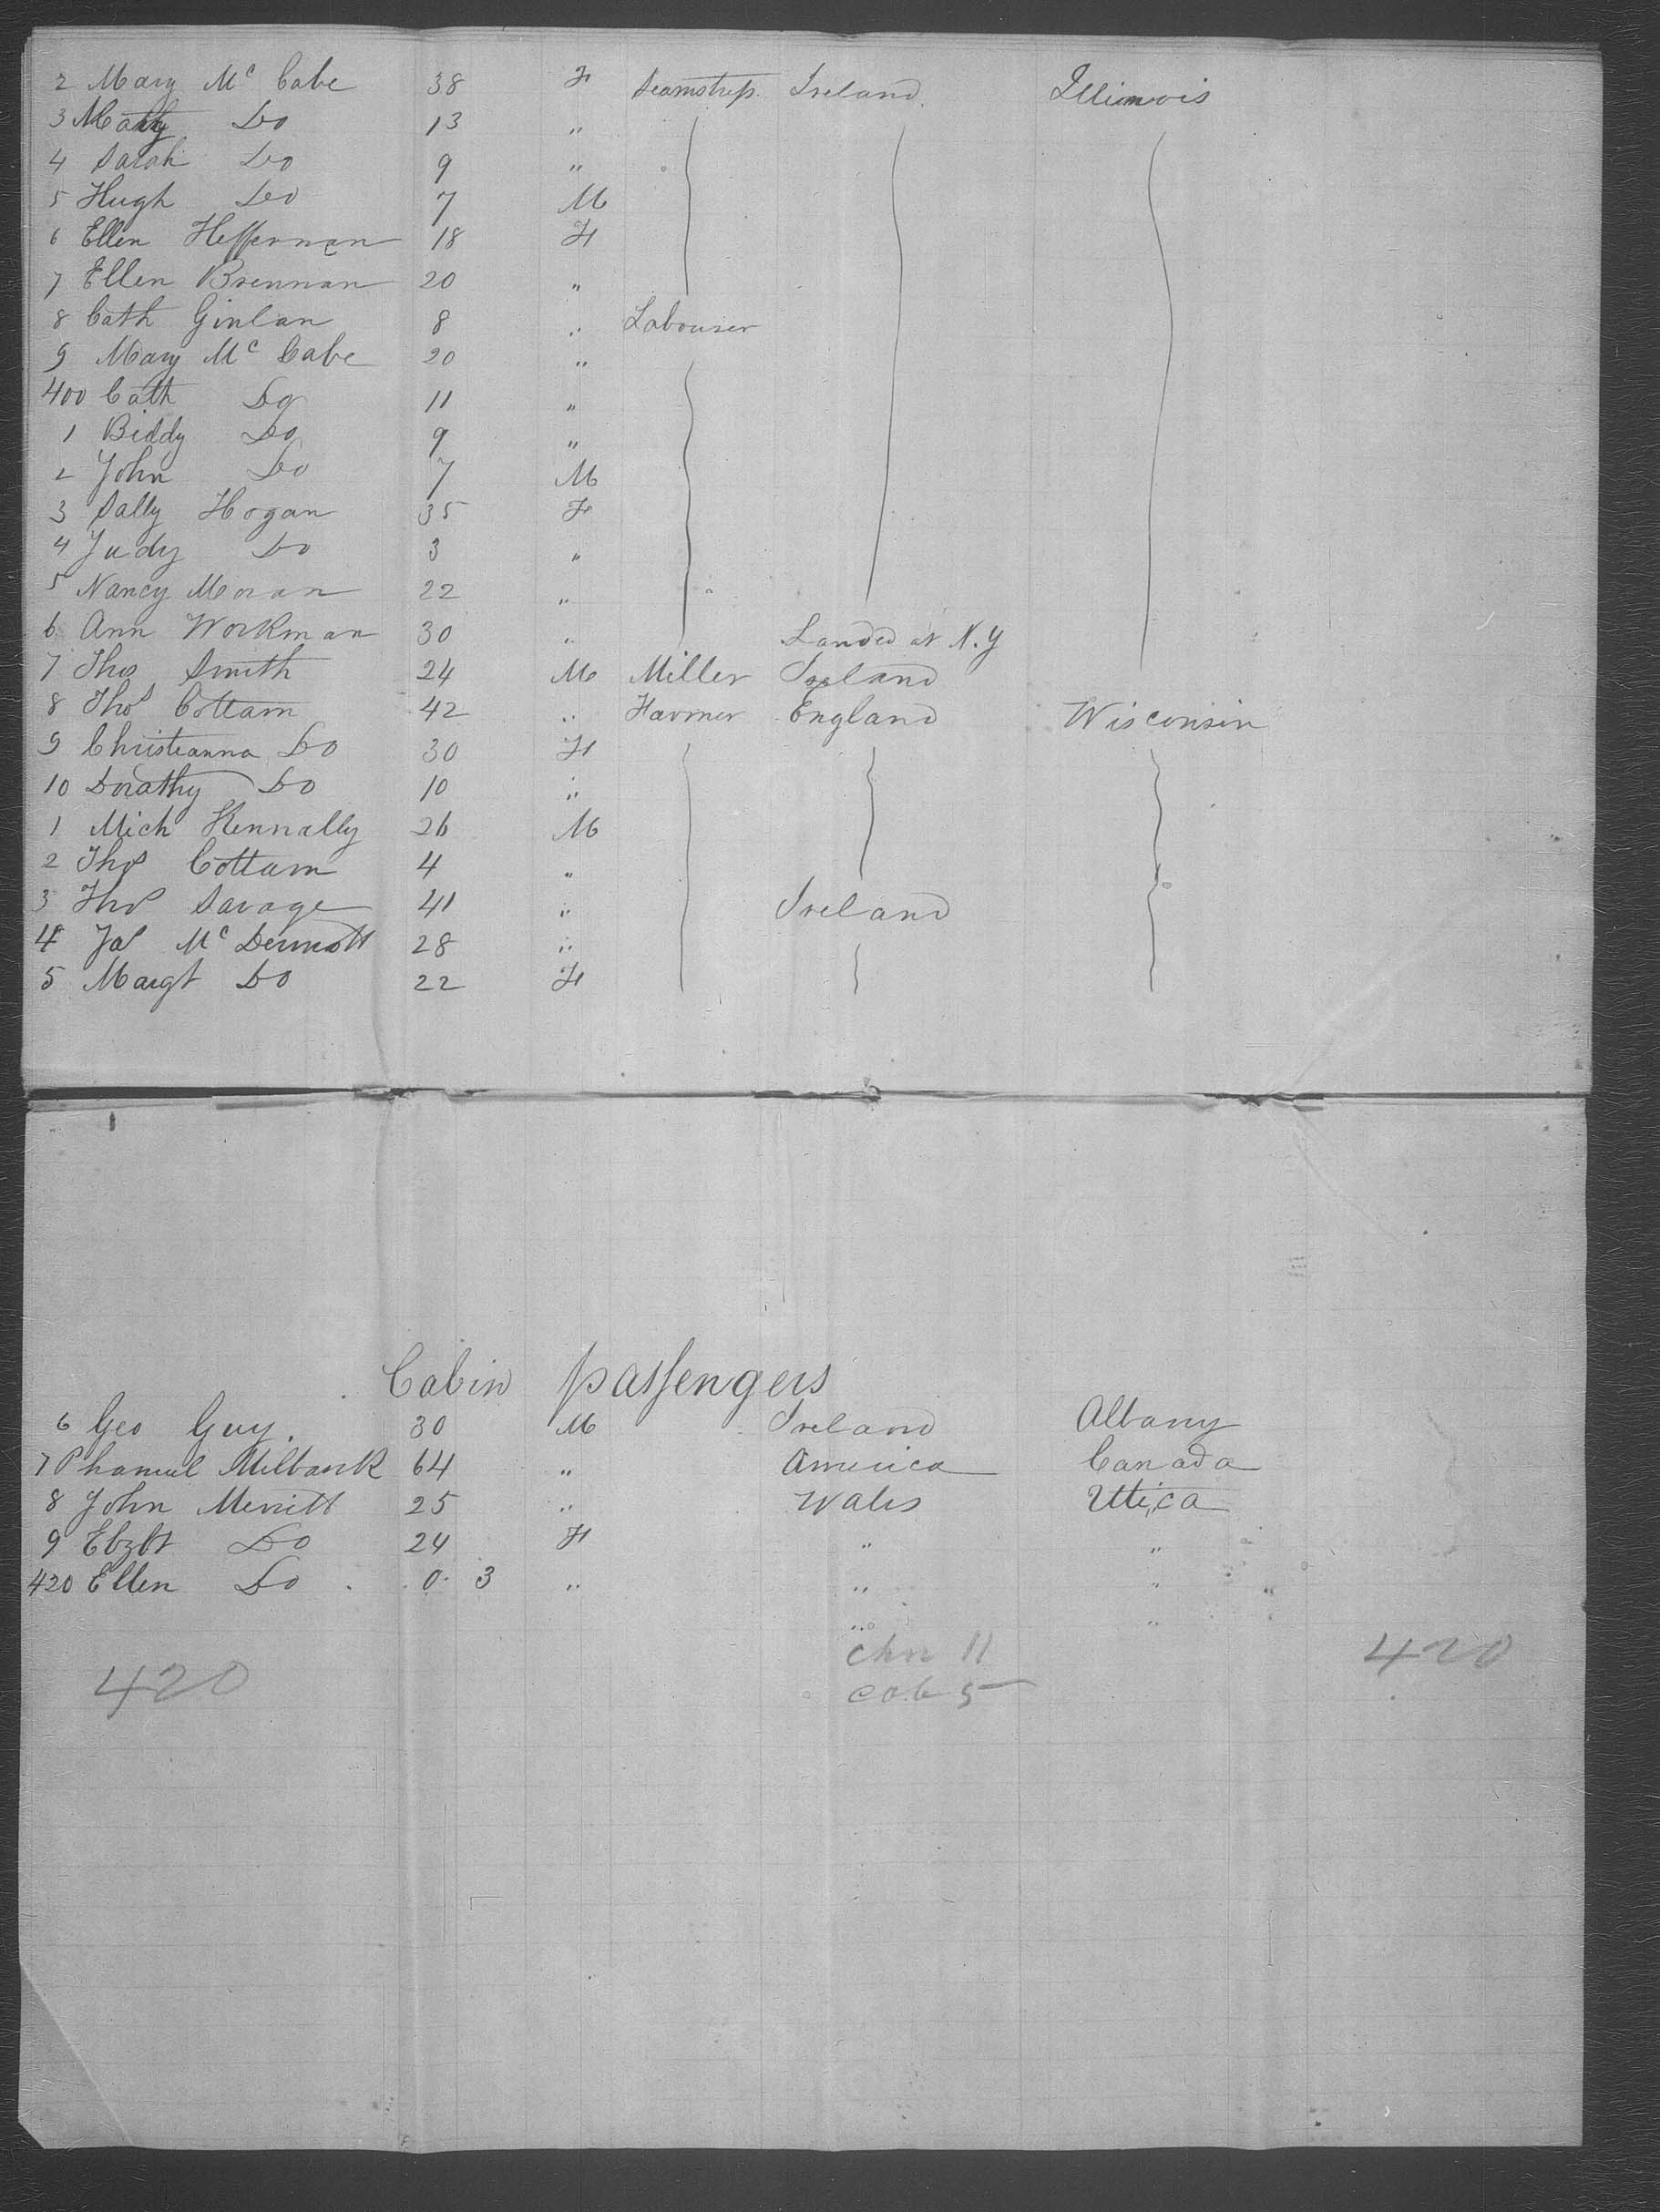 2 Mary Mc Cabe 38 F Seamstress Ireland Illinois
3 Do 13 "
4 Sarah Do 9 "
5 Hugh Do 7 M
6 Ellen Heffernan 18 F
7 Ellen Brennan 20 "
8 Cath Ginlan 8 " Labourer
9 Mary Mc Cabe 20 "
400 Cath Do 11 "
1 Biddy Do 9 "
2 John Do 7 M
3 Sally Hogan 35 F
4 Judy Do 3 "
5 Nancy Moran 22 "
6 Ann Workman 30 " Landed at N.Y
7 Thos Smith 24 M Miller Ireland
8 Thos Cottam 42 " Farmer England Wisconsin
9 Christeanna Do 30 F
10 Dorathy Do 10 "
1 Mich Kennally 26 M
2 Thos Cottam 4 "
3 Thos Savage 41 " Ireland
4 Jas Mc Dermott 28 "
5 Margt Do 22 F
Cabin passengers
6 Geo Guy. 30 M Ireland Albany
7 Milbank 64 " America Canada
8 John Merritt 25 " Wales Utica
9 Elzbt Do 24 F " "
420 Ellen Do 0. 3 " " " "
" "
chn 11 420
420 cab 5